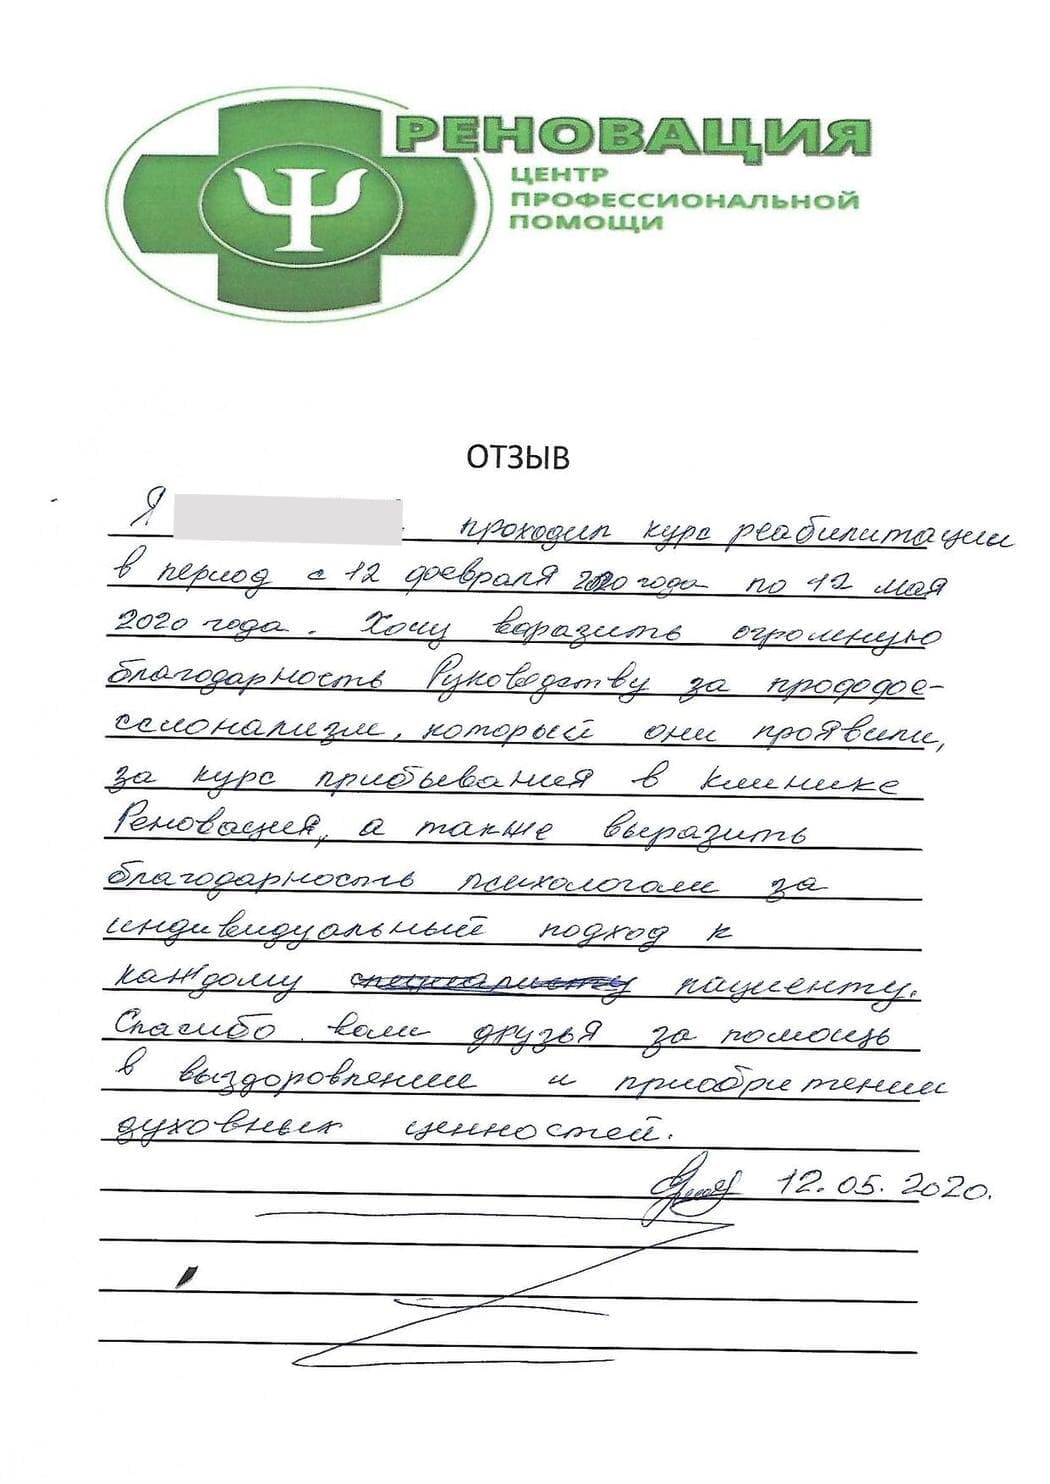 РЕНОВАЦИЯ
ЦЕНТР
ПРОФЕССИОНАЛЬНОЙ
ПОМОЩИ
ОТЗЫВ
Я проходил курс реабилитации
в период с 12 февраля 2020 года по 12 мая
2020 года. Хочу выразить огромную
благодарность Руководству за профофе-
ссионализм, который они проявили,
за курс прибывания в клинике
Реновация, а также выразить
благодарность психологам за
индивидуальный подход к
каждому пациенту.
Спасибо вам друзья за помощь
в выздоровлении и приобритении
духовных ценностей.
12.05.2020.